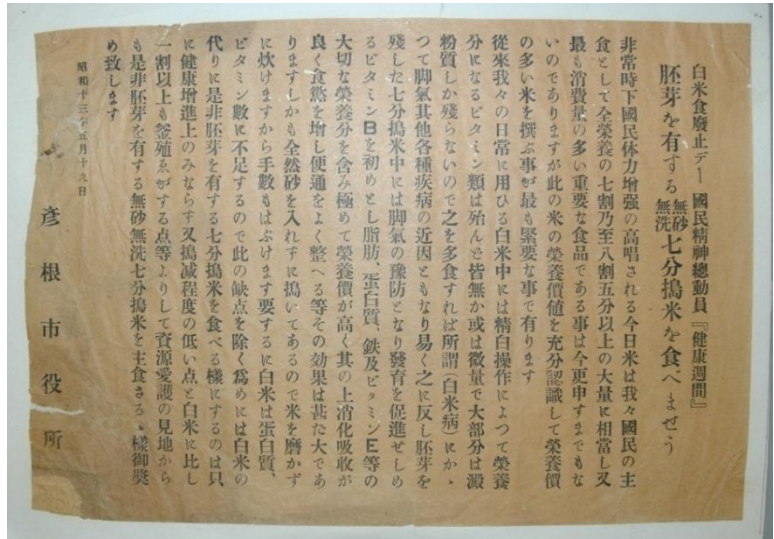 白米食廢止デー 國民精神總動員『健康週間』
胚芽を有する無砂無洗七分搗米を食べませう
非常時下國民体力增强の高唱される今日米は我々國民の主
食として全榮養の七割乃至八割五分以上の大量に相當し又
最も消費量の多い重要な食品である事は今更申すまでもな
いのでありますが此の米の榮養價値を充分認識して榮養價
の多い米を撰ぶ事が最も緊要な事で有ります
從來我々の日常に用ひる白米中には精白操作によつて榮養
分になるビタミン類は殆んど皆無か或は微量で大部分は澱
粉質しか殘らないので之を多食すれば所謂(白米病)にかゝ
つて脚氣其他各種疾病の近因ともなり易く之に反し胚芽を
殘した七分搗米中には脚氣の豫防となり發育を促進せしめ
るビタミンBを初めとし脂肪、蛋白質、鉄及ビタミンE等の
大切な榮養分を含み極めて榮養價が高く其の上消化吸收が
良く食慾を增し便通をよく整へる等その効果は甚だ大であ
りますしかも全然砂を入れずに搗いてあるので米を磨かず
に炊けますから手數もはぶけます要するに白米は蛋白質、
ビタミン數に不足するので此の缺点を除く爲めには白米の
代りに是非胚芽を有する七分搗米を食べる樣にするのは只
に健康增進上のみならず又搗減程度の低い点と白米に比し
一割以上も釜殖ゑがする点等よりして資源愛護の見地から
も是非胚芽を有する無砂無洗七分搗米を主食さるゝ樣御奬
め致します
昭和十三年五月十九日
彦根市役所